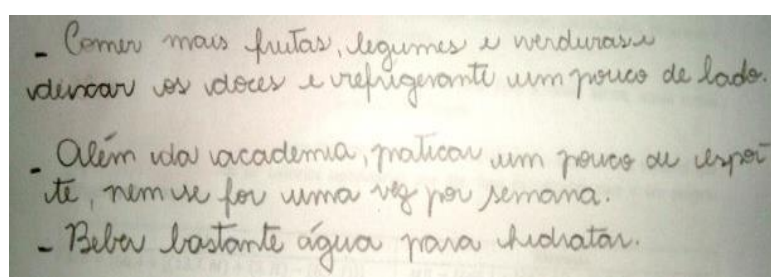 - Comer mais frutas, legumes e verduras e
deixar os doces e refrigerante um pouco de lado.
- Além da academia, praticar um pouco de espor-
te, nem se for uma vez por semana.
- Beber bastante água para hidratar.